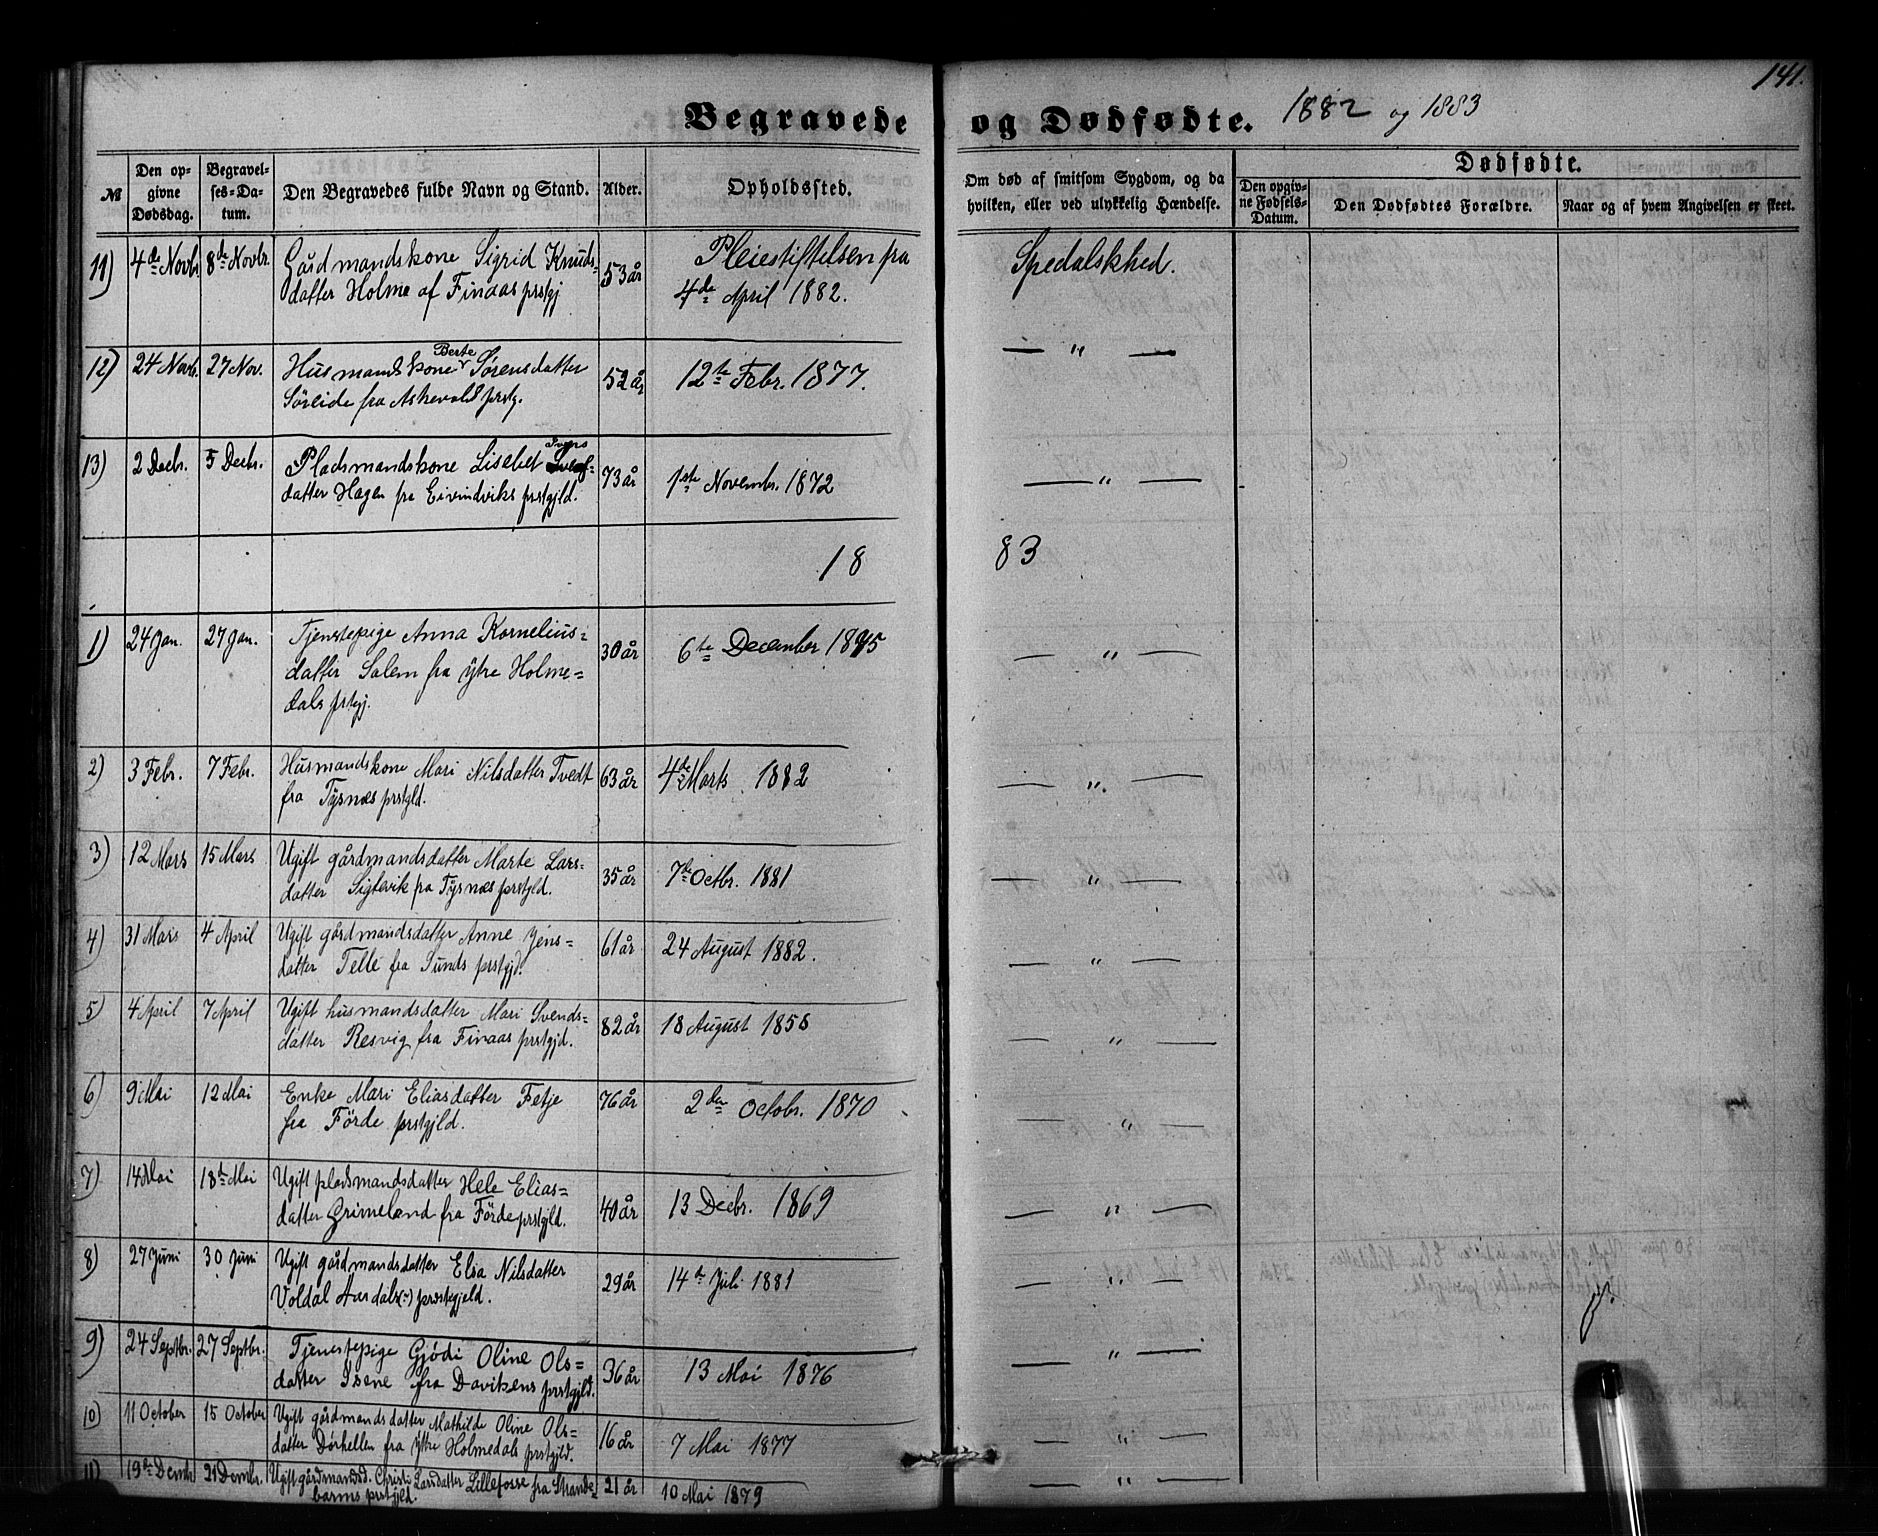 141.
Begravede og Dødfødte. 1882 og 1883
№ | Den opgivne Dødsdag. | Begravelses-Datum. | Den Begravedes fulde Navn og Stand. | Alder. | Opholdssted. | Om død af smitsom Sygdom, og da hvilken, eller ved ulykkelig Hændelse. | Dødfødte.
Den opgivne Fødsels-Datum. | Den Dødfødtes Forældre. | Naar og af hvem Angivelsen er skeet.
11) 4de Novb. 8de Novbr. Gårdmandskone Sigrid Knuds- 53 år Pleiestiftelsen fra Spedalskhed.
datter Holme af Finaas prstgj 4de April 1882.
12) 24 Novb. 27 Nov. Husmandskone Berte Sørensdatter 52 år 12te Febr. 1877. — " —
Söreide fra Askevold prstg.
13) 2 Decbr. 5 Decbr. Pladsmandskone Lisebet Ivers 73 år 1ste Novembr. 1872 — " —
datter Hagen fra Eivindviks prstgjld.
18 83
1) 24 Jan. 27 Jan. Tjenstepige Anna Kornelius= 30 år 6te December 1875 — " —
datter Salem fra ytre Holme=
dals prstgj.
2) 3 Febr. 7 Febr. Husmandskone Mari Nilsdatter Tvedt 63 år 4de Marts 1882 — " —
fra Tysnæs prstgld.
3) 12 Mars 15 Mars Ugift gårdmandsdatter Marte Lars- 35 år 7de Octbr. 1881 — " —
datter Sigtevik fra Tysnæs prstgld.
4) 31 Mars 4 April Ugift gårdmandsdatter Anne Jens= 61 år 24 August 1882. — " —
datter Telle fra Sunds prstgjd.
5) 4 April 7 April Ugift husmandsdatter Mari Svends- 82 år 18 August 1858 — " —
datter Resvig fra Finaas prstgjd.
6) 9 Mai 12 Mai Enke Mari Eliasdatter Fetje 76 år 2den Octobr. 1870 — " —
fra Förde prstgjld.
7) 14 Mai 18de Mai Ugift pladsmandsdatter Hele Elias= 40 år 13 Decbr. 1869 — " —
datter Grimeland fra Förde prstgjld.
8) 27 Juni 30 Juni Ugift gårdmandsdatter Elsa Nilsdatter 29 år 14de Juli 1881 — " —
Voldal Aardals(?) prestegjeld.
9) 24 Septbr. 27 Septbr. Tjenestepige Gjödi Oline Ols= 36 år 13 Mai 1876 — " —
datter Isene fra Davikens prstgjld.
10) 11 October 15 October Ugift gårdmandsdatter Mathilde Oline Ols= 16 år 7 Mai 1877 — " —
datter Dörhellen fra Yttre Holmedals prstgjld.
11) 19de Decmbr 21 Decmbr. Ugift gårdmandsd. Christi Larsdatter Lillefosse fra Strande= 21 år 10 Mai 1879 — " —
barms prstgjld.